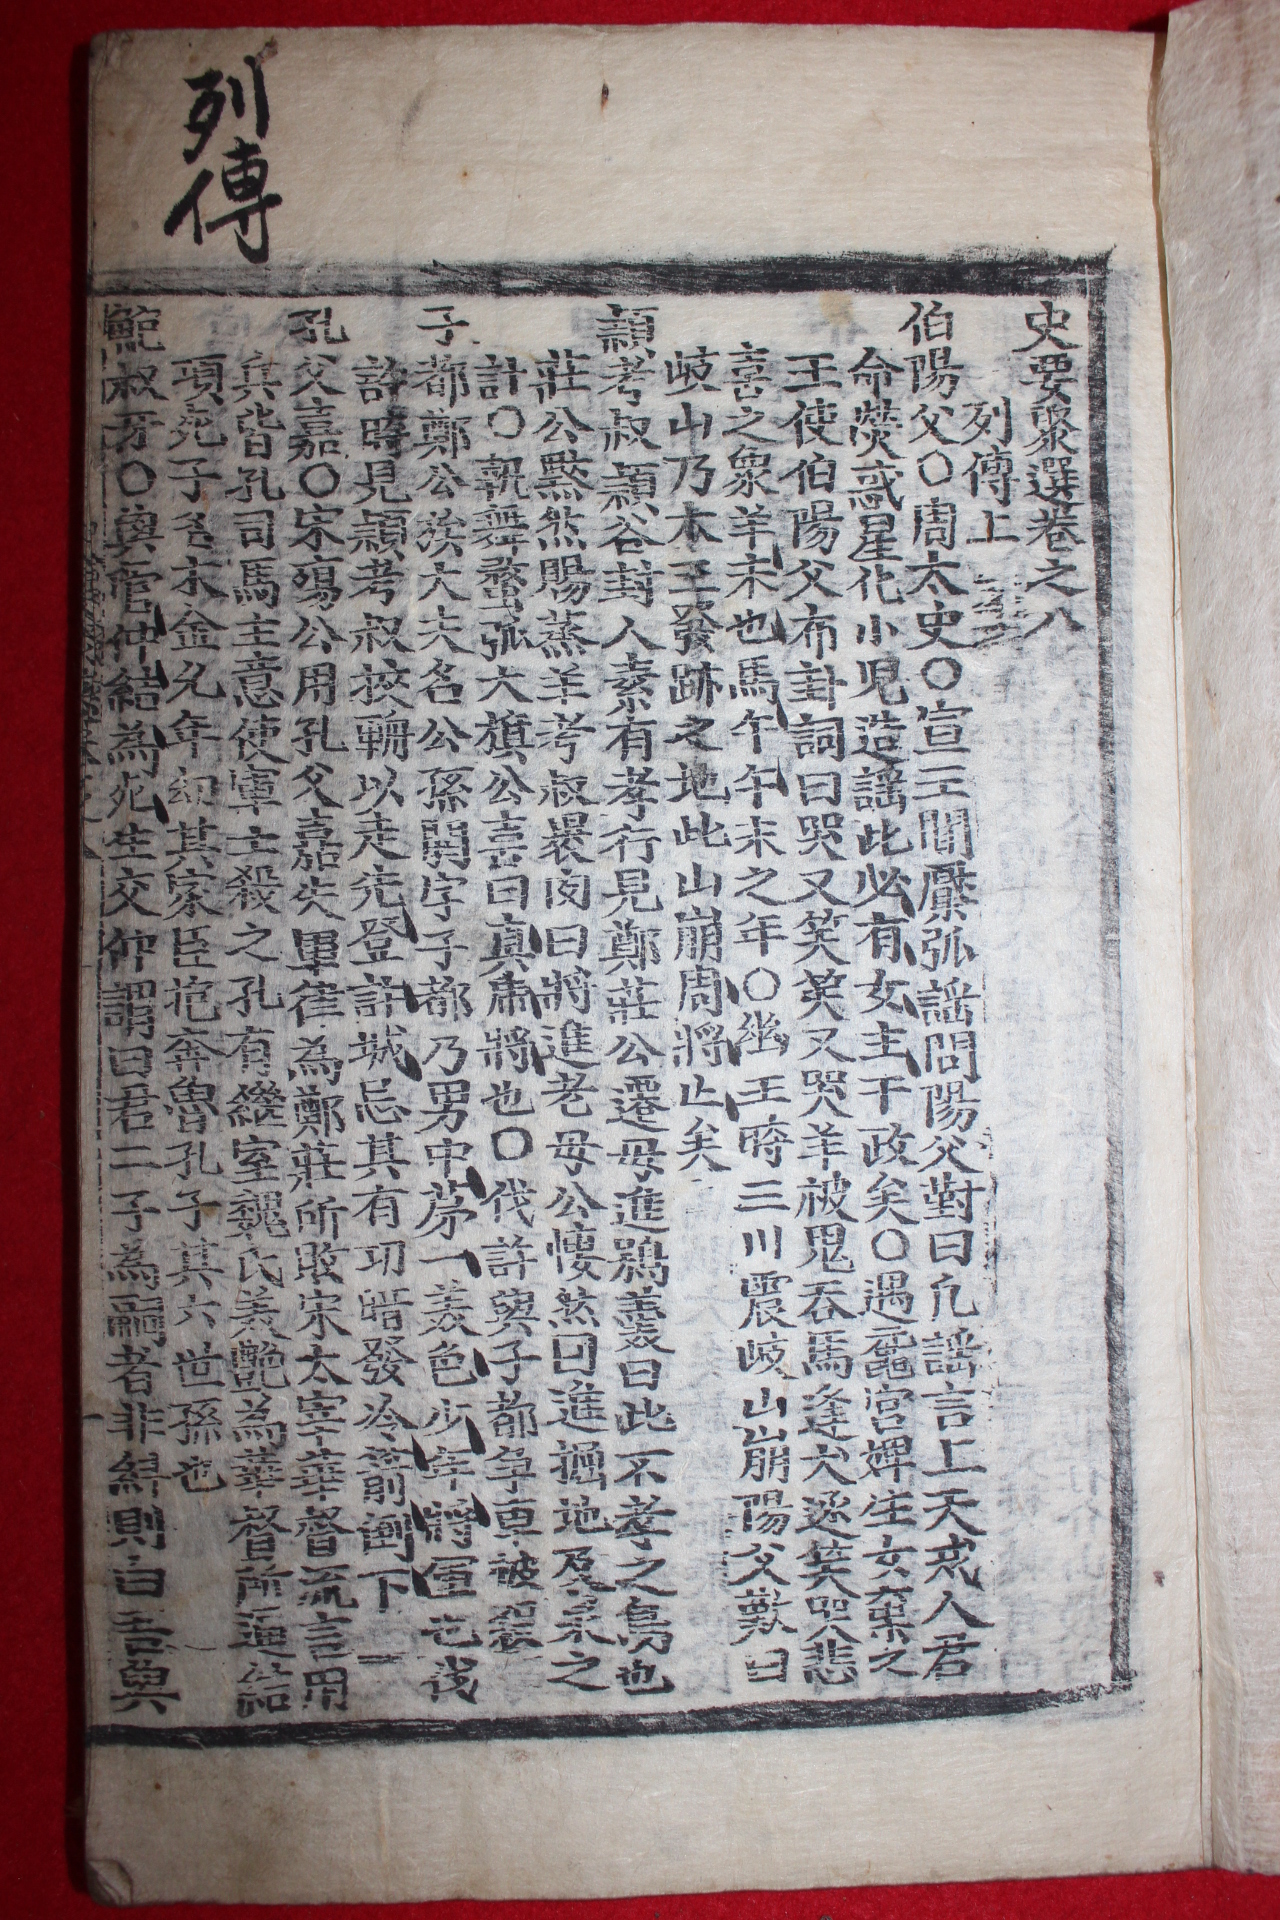 列傳
史要聚選卷之八
列傳上
伯陽父○周太史○宣王聞檿弧謠問陽父對曰凡謠言上天戒人君
命熒惑星化小兒造謠此必有女主干政矣○遇黿宮婢生女棄之
王使伯陽父布卦詞曰哭又笑笑又哭羊被鬼吞馬逢犬逐笑哭悲
喜之象羊未也馬午午未之年○幽王時三川震岐山崩陽父歎曰
岐山乃本王發跡之地此山崩周將亡矣
穎考叔穎谷封人素有孝行見鄭莊公遷母進鴞羹曰此不孝之鳥也
莊公黙然賜蒸羊考叔裹肉曰將進老母公悽然曰進掘地及泉之
計○執舞蝥弧大旗公喜曰眞虎將也○伐許與子都爭車被
子都鄭公族大夫名公孫閼字子都乃男中苐一美色少年將軍也伐
許時見穎考叔挾輈以走先登許城忌其有功暗發冷箭倒下
孔父嘉○宋殤公用孔父嘉失軍律為鄭莊所敗宋太宰華督流言用
兵皆孔司馬主意使軍士殺之孔有繼室魏氏美艶為華督所逼結
項死子名木金父年幼其家臣抱奔魯孔子其六世孫也
鮑叔牙○與管仲結為死生交仲謂曰君二子為嗣者非糾則白吾與